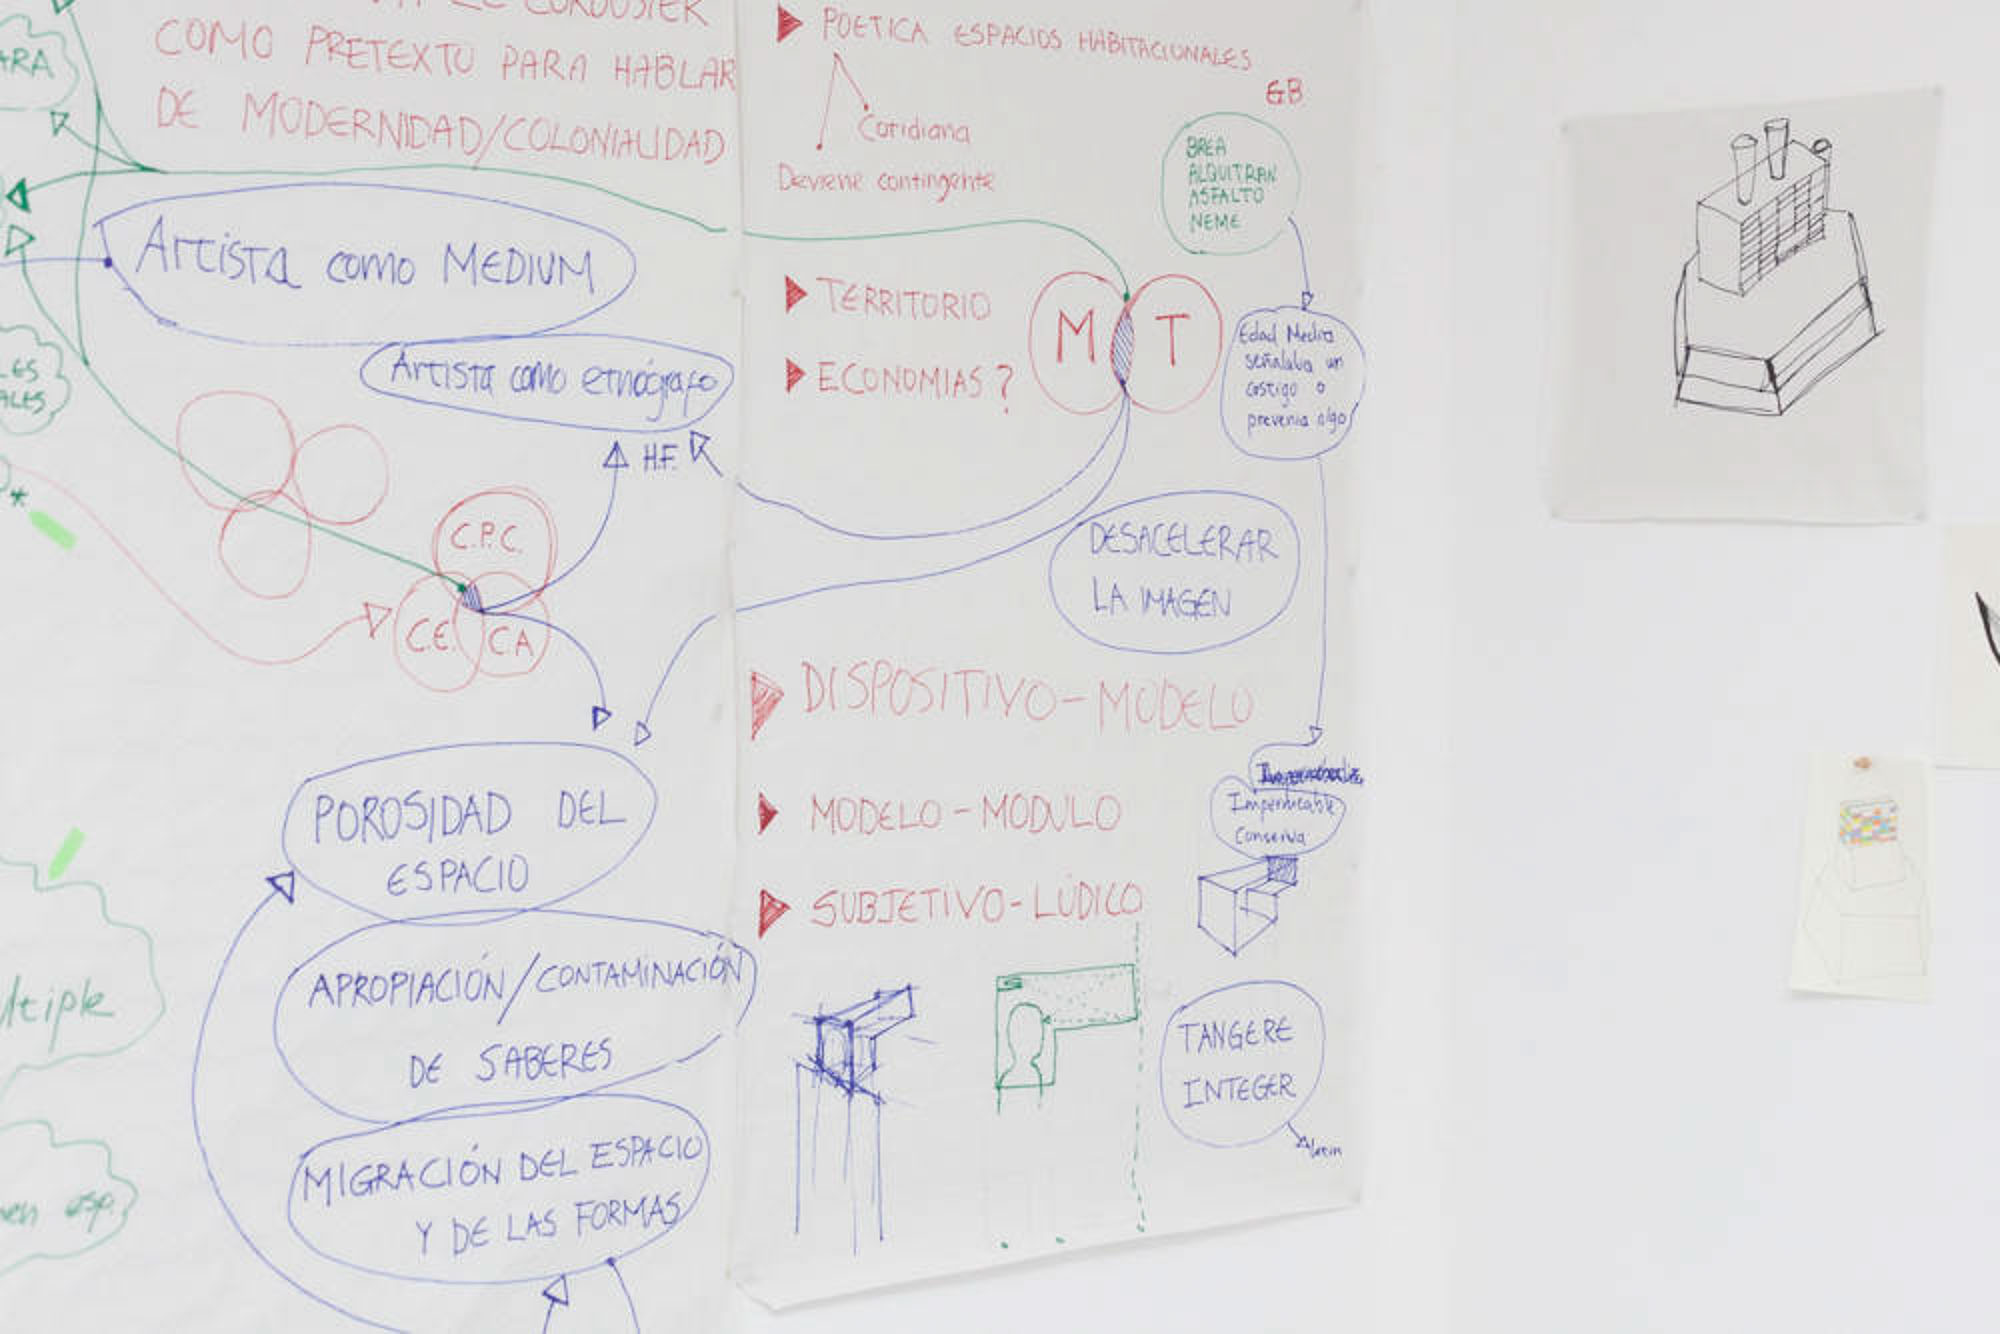 LE CORBUSIER
COMO PRETEXTO PARA HABLAR
DE MODERNIDAD/COLONIALIDAD
ARA
Artista como MEDIUM
Artista como etnógrafo
H.F.
LES
ALES
*
C.P.C.
C.E.
C.A
POROSIDAD DEL
ESPACIO
APROPIACIÓN/CONTAMINACIÓN
DE SABERES
MIGRACIÓN DEL ESPACIO
Y DE LAS FORMAS
ltiple
en esp.
POETICA ESPACIOS HABITACIONALES
Cotidiana
Deviene contingente
GB
BREA
ALQUITRAN
ASFALTO
NEME
TERRITORIO
ECONOMIAS?
M T
Edad Media
señalaba un
castigo o
prevenia algo
DESACELERAR
LA IMAGEN
DISPOSITIVO-MODELO
MODELO-MODULO
SUBJETIVO-LÚDICO
Impermeable
Conserva
TANGERE
INTEGER
latin